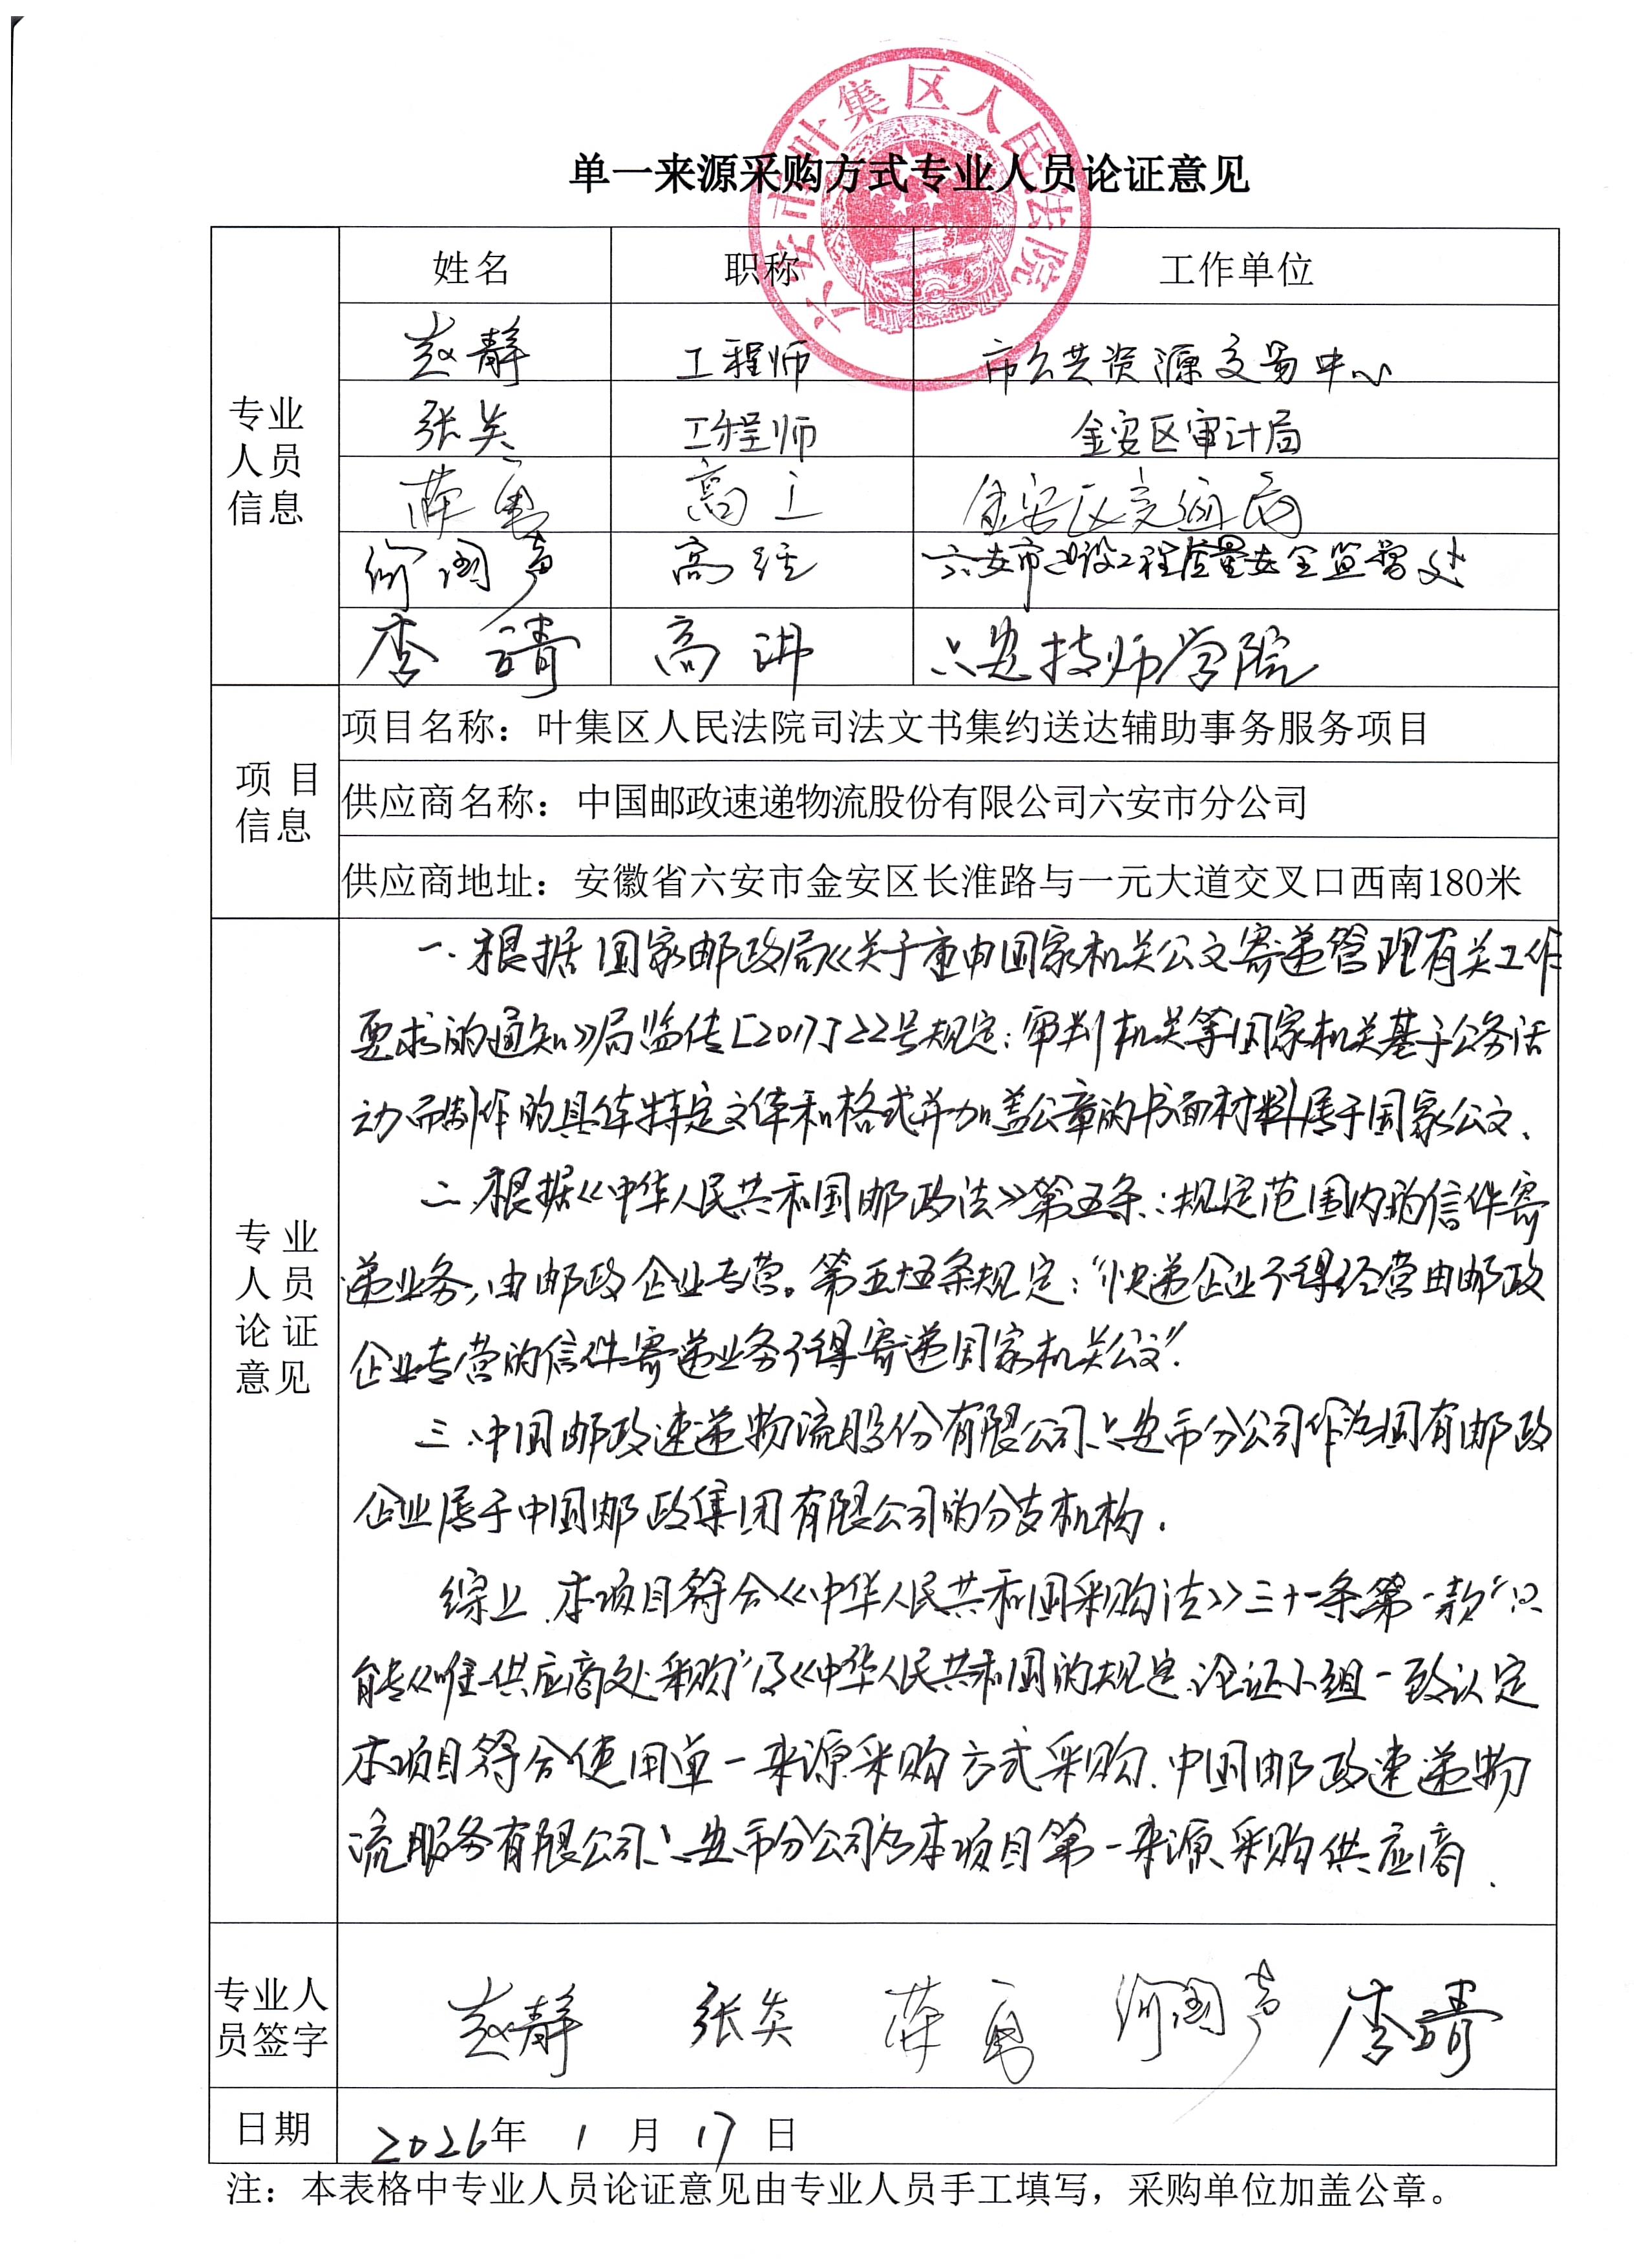 六安市叶集区人民法院
单一来源采购方式专业人员论证意见
专业人员信息
姓名 职称 工作单位
赵静 工程师 市公共资源交易中心
张岚 工程师 金安区审计局
薛勇 高工 金安区交通局
何国声 高经 六安市建设工程质量安全监督处
李靖 高讲 六安技师学院
项目信息
项目名称：叶集区人民法院司法文书集约送达辅助事务服务项目
供应商名称：中国邮政速递物流股份有限公司六安市分公司
供应商地址：安徽省六安市金安区长淮路与一元大道交叉口西南180米
专业人员论证意见
一、根据国家邮政局《关于重申国家机关公文寄递管理有关工作
要求的通知》局监传[2017]22号规定：审判机关等国家机关基于公务活
动而制作的具体特定文体和格式并加盖公章的书面材料属于国家公文、
二、根据《中华人民共和国邮政法》第五条：规定范围内的信件寄
递业务，由邮政企业专营。第五十五条规定：“快递企业不得经营由邮政
企业专营的信件寄递业务不得寄递国家机关公文”.
三、中国邮政速递物流股份有限公司六安市分公司作为国有邮政
企业属于中国邮政集团有限公司的分支机构.
综上、本项目符合《中华人民共和国采购法》三十一条第一款“只
能从唯一供应商处采购”及《中华人民共和国的规定、论证小组一致认定
本项目符合使用单一来源采购方式采购、中国邮政速递物
流服务有限公司六安市分公司为本项目第一来源采购供应商.
专业人员签字
赵静 张岚 薛勇 何国声 李靖
日期 2026年 1 月 17 日
注：本表格中专业人员论证意见由专业人员手工填写，采购单位加盖公章。